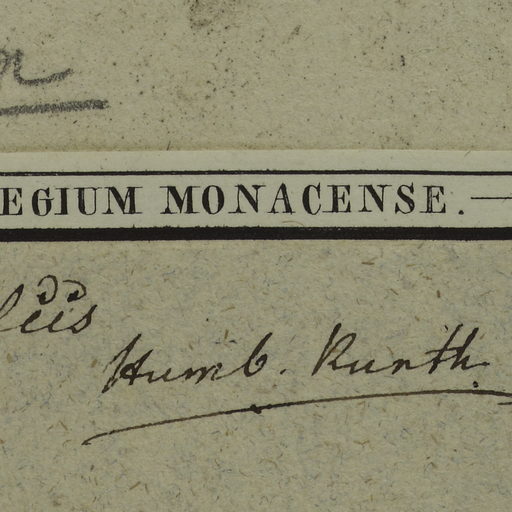 EGIUM MONACENSE.
Humb. Kunth.